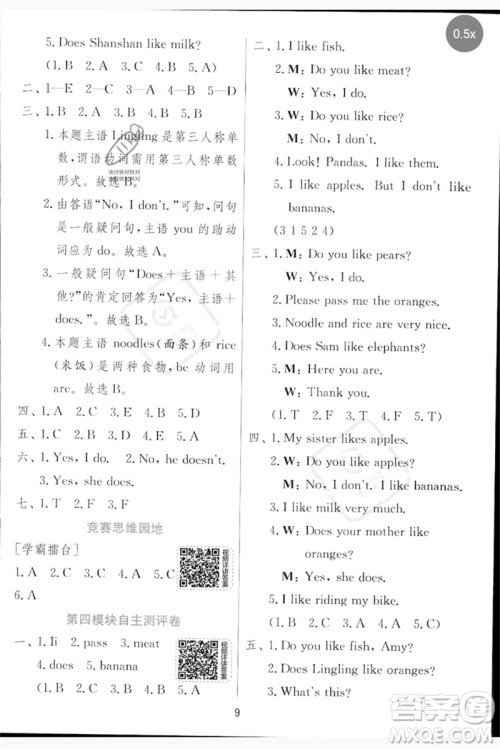 0.5x
5. Does Shanshan like milk?
(1. B  2. A  3. C  4. B  5. A)
二、1—E  2—C  3—A  4—B  5—D
三、1. B  2. A  3. B  4. B
1. 本题主语 Lingling 是第三人称单
数，谓语动词需用第三人称单数
形式。故选 B。
2. 由答语“No, I don't.”可知，问句
是一般疑问句，you 的助动
词应为 do。故选 A。
3. 一般疑问句“Does＋主语＋其
他?”的肯定回答为“Yes, 主语＋
does.”。故选 B。
4. 本题主语 noodles(面条) 和 rice
(米饭) 是两种食物，be 动词用
are。故选 B。
四、1. A  2. C  3. B  4. B  5. A
五、1. C  2. B  3. D  4. E  5. A
六、1. Yes, I do.  2. No, he doesn't.
3. Yes, she does.
七、1. T  2. F  3. F
竞赛思维园地
[学霸擂台]
1. A  2. C  3. C  4. B  5. B
6. A
视频讲解答案
第四模块自主测评卷
一、1. Ii  2. pass  3. meat
4. does  5. banana
(1. B  2. A  3. C  4. B  5. A)
视频讲解答案
二、1. I like fish.
2. M: Do you like meat?
W: Yes, I do.
3. W: Do you like rice?
M: No, I don't.
4. Look! Pandas. I like them.
5. I like apples. But I don't like
bananas.
(3 1 5 2 4)
三、1. M: Do you like pears?
W: Yes, I do.
2. Please pass me the oranges.
3. Noodle and rice are very nice.
4. Does Sam like elephants?
5. M: Here you are.
W: Thank you.
(1. T  2. F  3. F  4. T  5. T)
四、1. My sister likes apples.
2. W: Do you like oranges?
M: No, I don't. I like bananas.
3. I like milk very much.
4. W: Does your mother like
meat?
M: Yes, she does.
5. I like riding my bike.
(1. D  2. C  3. E  4. B  5. A)
五、1. Do you like fish, Amy?
2. Does Lingling like oranges?
3. What's this?
9
快对快对快对